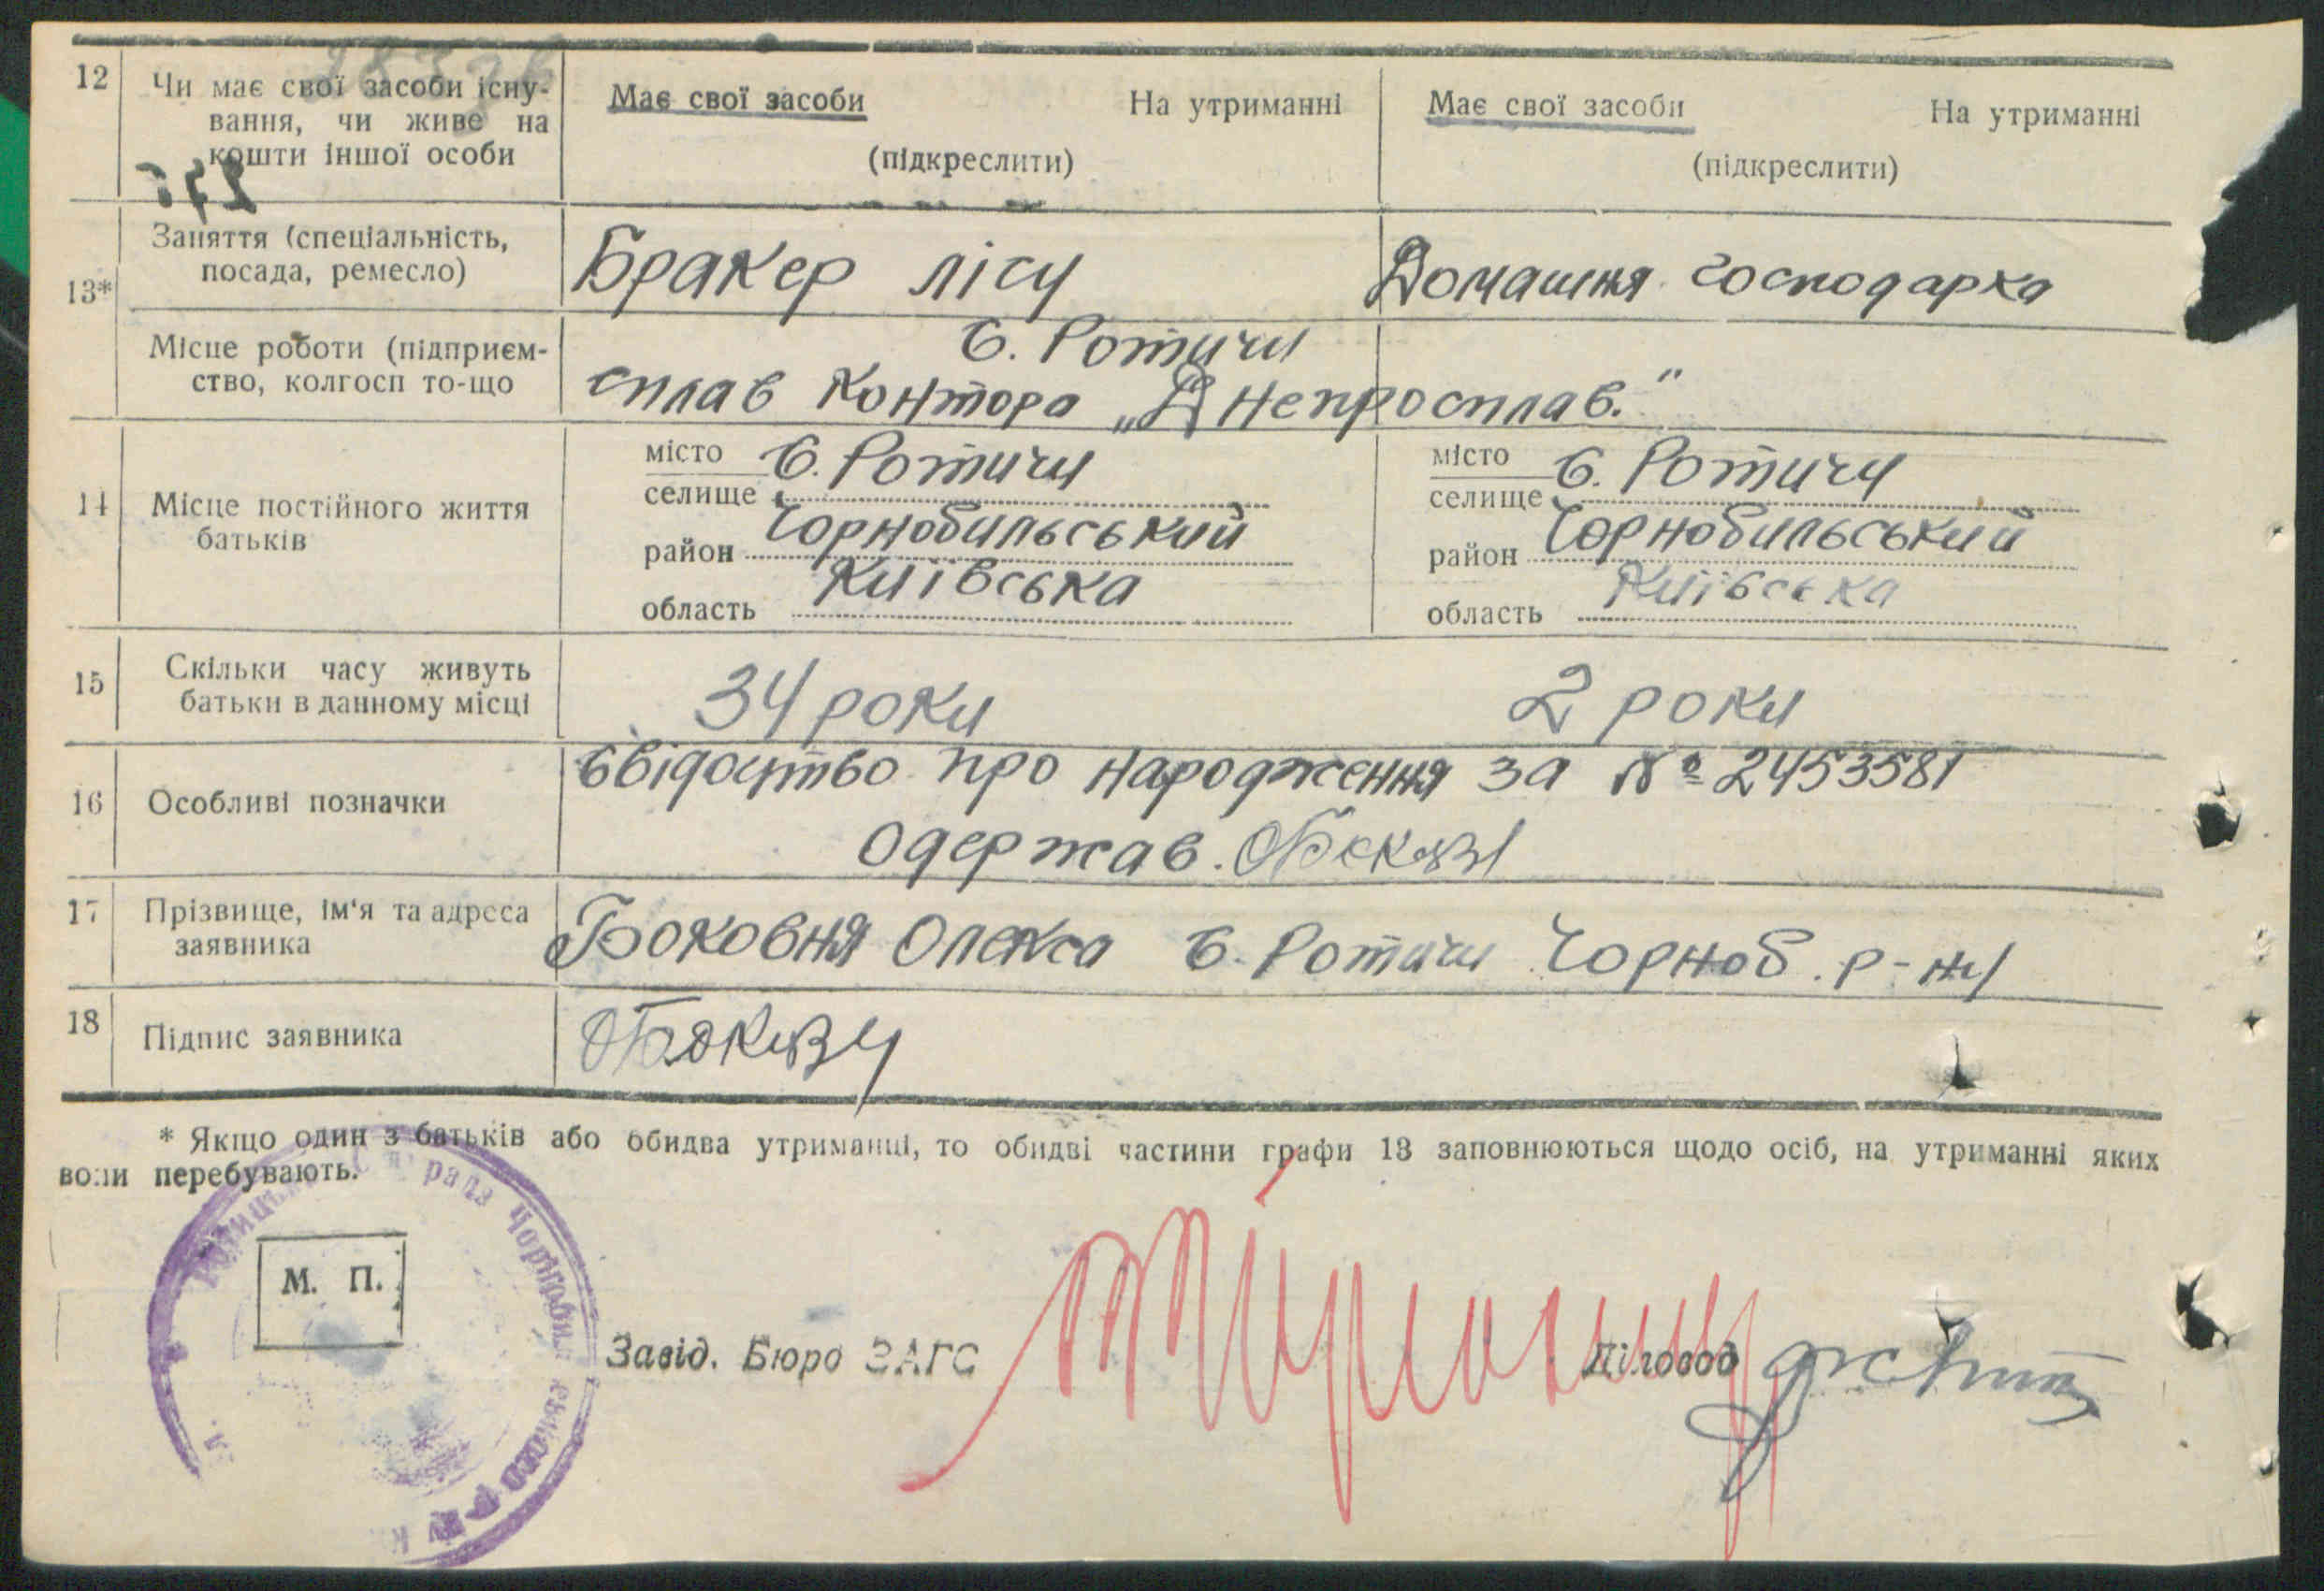 12 Чи має свої засоби існу-
вання, чи живе на
кошти іншої особи
Має свої засоби На утриманні
(підкреслити)
Має свої засоби На утриманні
(підкреслити)
13*
Заняття (спеціальність,
посада, ремесло)
Бракер лісу
Домашня господарка
Місце роботи (підприєм-
ство, колгосп то-що
с. Ротичи
сплав контора „Днепросплав."
14 Місце постійного життя
батьків
місто с. Ротичи
селище
район Чорнобильський
область Київська
місто с. Ротичи
селище
район Чорнобильський
область Київська
15 Скільки часу живуть
батьки в данному місці
34 роки
2 роки
16 Особливі позначки
Свідоцтво про народження за № 2453581
одержав.
17 Прізвище, ім'я та адреса
заявника
Боковня Олекса с. Ротичи Чорноб. р-ну
18 Підпис заявника
* Якщо один з батьків або обидва утриманці, то обидві частини графи 13 заповнюються щодо осіб, на утриманні яких
вони перебувають.
рада Чорнобил
М. П.
Завід. Бюро ЗАГС
Діловод